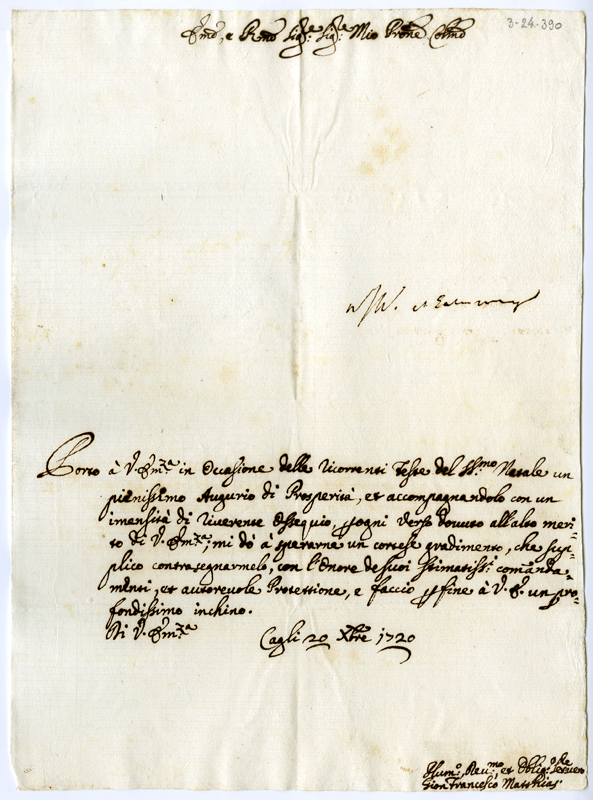 3-24-390
Emo, e Rmo Sigr: Sigr: Mio Prone Colmo
Porto à V. Emza in Occasione delle ricorrenti Feste del SS.mo Natale un
pienissimo Augurio di Prosperità, et accompagnandolo con un
imensità di riverente Ossequio, p ogni verso dovuto all'alto meri=
to di V. Emza, mi dò à sperarne un cortese gradimento, che sup=
plico contrasegnarmelo, con l'Onore de suoi stimatissi: comanda=
menti, et autorevole Protettione, e faccio p fine à V. E. un pro=
fondissimo inchino.
Di V. Emza
Cagli 20 Xbre 1720
Humo: Devmo, et Obligo: Servre
Gion Francesco Matthias